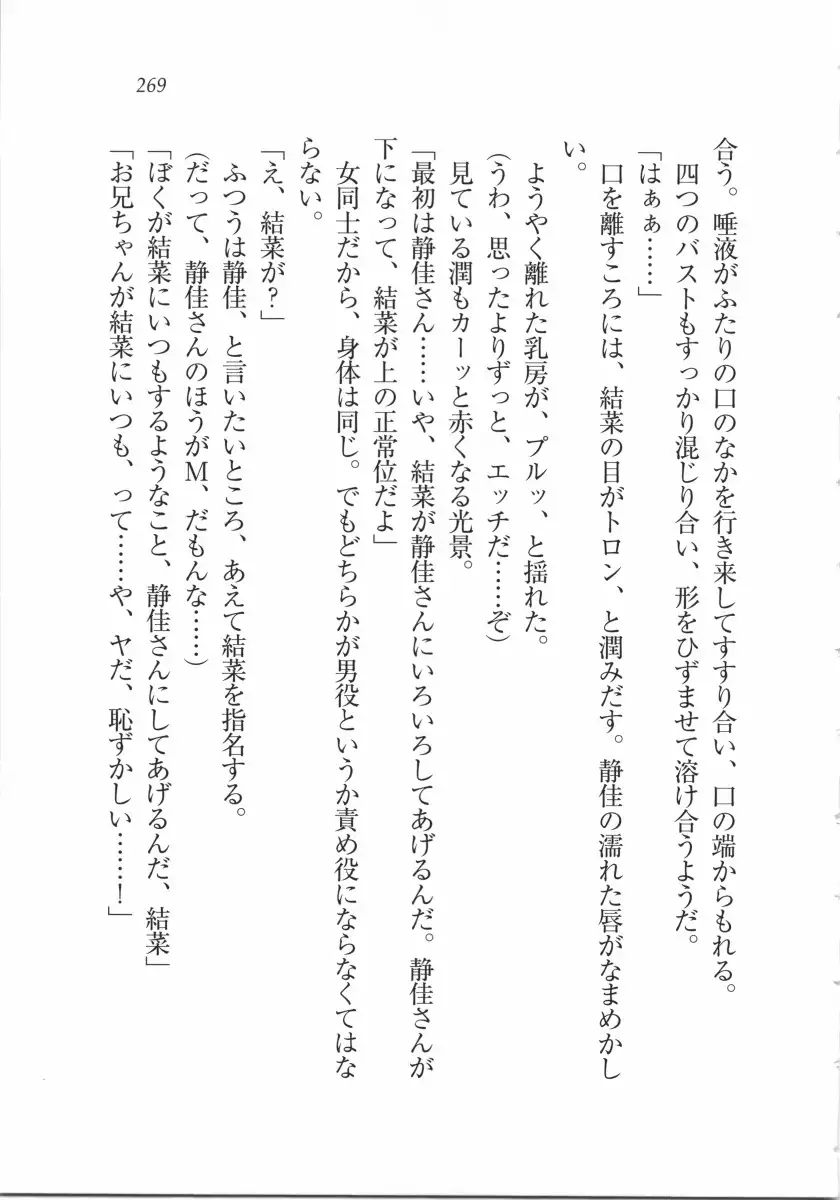 269
合う。唾液がふたりの口のなかを行き来してすすり合い、口の端からもれる。
四つのバストもすっかり混じり合い、形をひずませて溶け合うようだ。
「はぁぁ……」
口を離すころには、結菜の目がトロン、と潤みだす。静佳の濡れた唇がなまめかし
い。
ようやく離れた乳房が、プルッ、と揺れた。
(うわ、思ったよりずっと、エッチだ……ぞ)
見ている潤もカーッと赤くなる光景。
「最初は静佳さん……いや、結菜が静佳さんにいろいろしてあげるんだ。静佳さんが
下になって、結菜が上の正常位だよ」
女同士だから、身体は同じ。でもどちらかが男役というか責め役にならなくてはな
らない。
「え、結菜が?」
ふつうは静佳、と言いたいところ、あえて結菜を指名する。
(だって、静佳さんのほうがM、だもんな……)
「ぼくが結菜にいつもするようなこと、静佳さんにしてあげるんだ、結菜」
「お兄ちゃんが結菜にいつも、って……や、ヤだ、恥ずかしい……!」